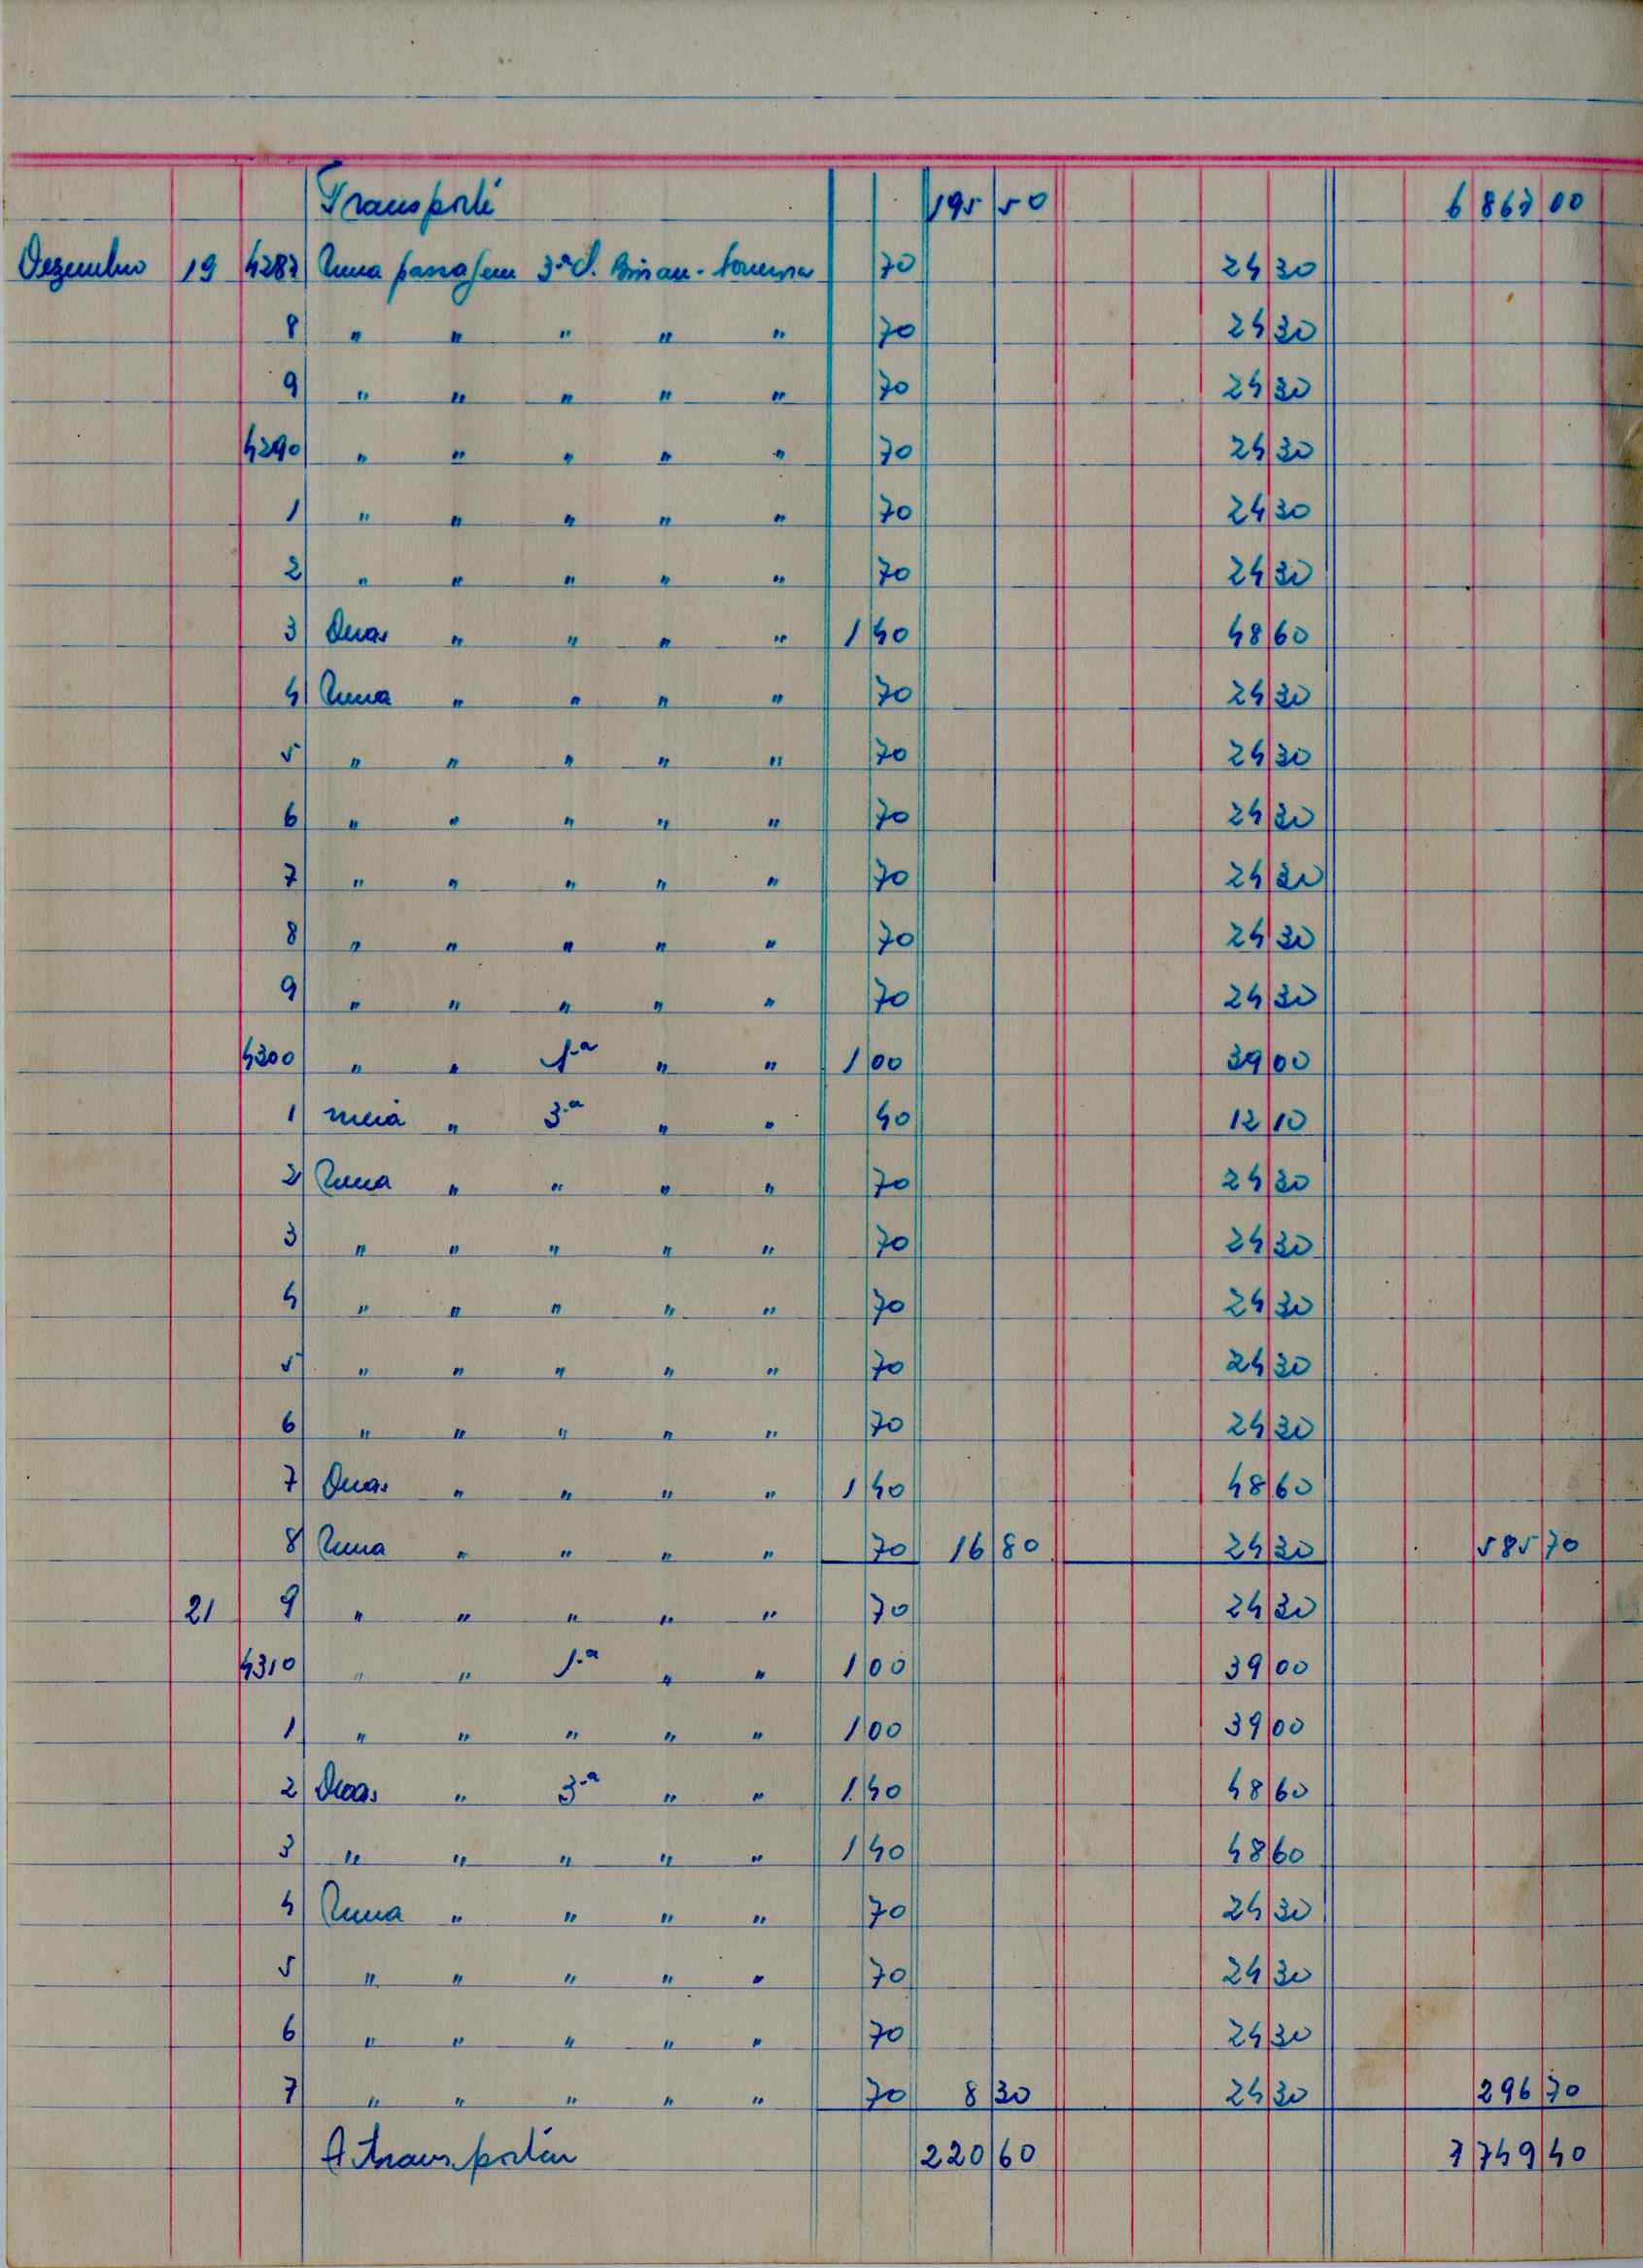 Transporte 195 50 6 867 00
Dezembro 19 4287 Uma passagem 3ª cl. Bissau - 70 24 30
8 " " " " " 70 24 30
9 " " " " " 70 24 30
4290 " " " " " 70 24 30
1 " " " " " 70 24 30
2 " " " " " 70 24 30
3 Duas " " " " 1 40 48 60
4 Uma " " " " 70 24 30
5 " " " " " 70 24 30
6 " " " " " 70 24 30
7 " " " " " 70 24 30
8 " " " " " 70 24 30
9 " " " " " 70 24 30
4300 " " 1.ª " " 1 00 39 00
1 meia " 3.ª " " 40 12 10
2 Uma " " " " 70 24 30
3 " " " " " 70 24 30
4 " " " " " 70 24 30
5 " " " " " 70 24 30
6 " " " " " 70 24 30
7 Duas " " " " 1 40 48 60
8 Uma " " " " 70 16 80 24 30 585 70
21 9 " " " " " 70 24 30
4310 " " 1.ª " " 1 00 39 00
1 " " " " " 1 00 39 00
2 Duas " 3.ª " " 1 40 48 60
3 " " " " " 1 40 48 60
4 Uma " " " " 70 24 30
5 " " " " " 70 24 30
6 " " " " " 70 24 30
7 " " " " " 70 8 30 24 30 296 70
A transportar 220 60 7 749 40